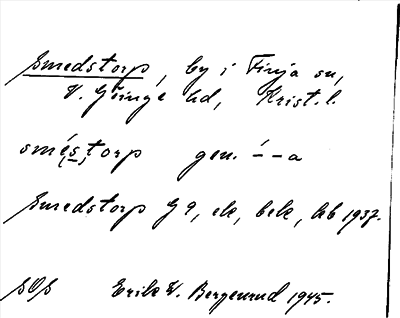 Smedstorp, by i Finja sn,
V. Göinge hd, Krist. l.
smés(s)torp gen. ´ – – a
Smedstorp G 9, ek, bek, kb 1937.
SOS Erik W. Bergenrud 1945.